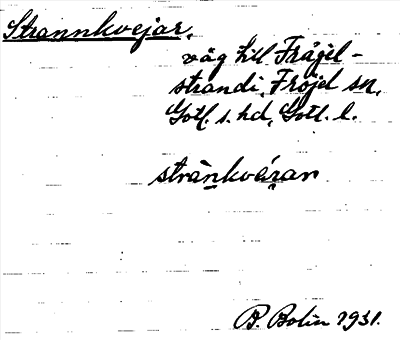 Strannkvejar,
väg till Fråjel-
strandi, Fröjel sn,
Gotl. s. hd, Gotl. l.
strànkvárar
B. Bolin 1931.